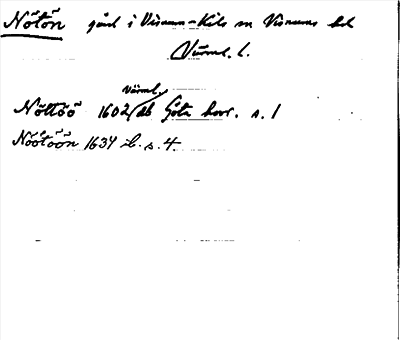 Nötön gård i Visnums-Kils sn Visnums hd
Värml. l.
Värml.
Nöttöö 1602 db Göta hovr. s. 1
Nöötöön 1634 ib. s. 4.